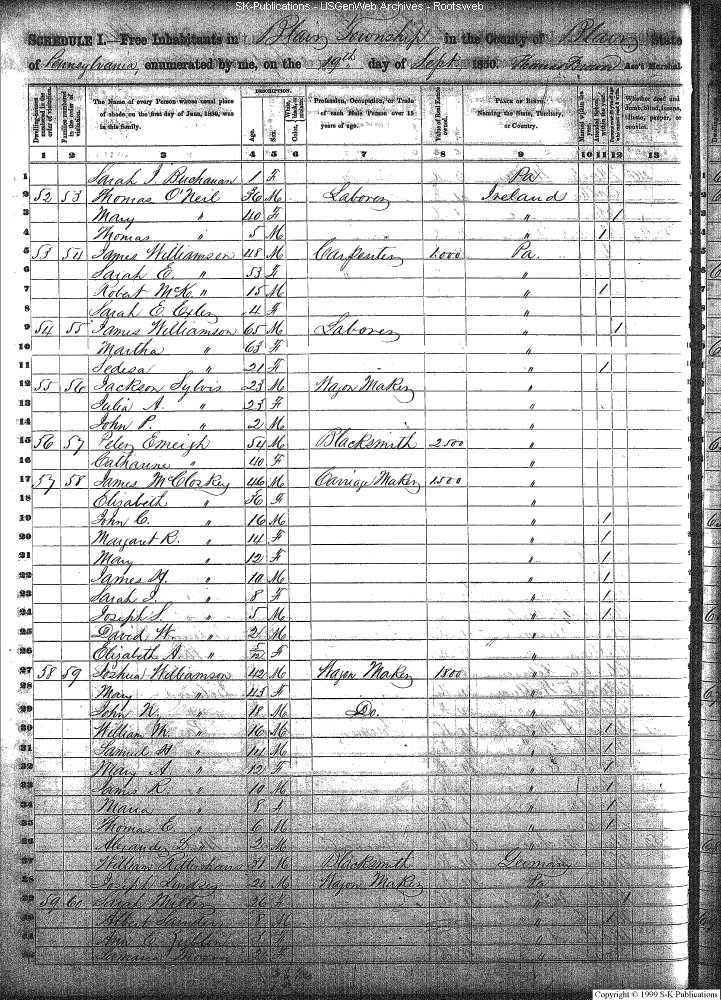 SK-Publications - USGenWeb Archives - Rootsweb
SCHEDULE I.—Free Inhabitants in Blair Township in the County of Blair State
of Pennsylvania, enumerated by me, on the 19th day of Sept 1850. Thomas Brown Ass't Marshal.
DESCRIPTION.
Dwelling-houses numbered in the order of visitation. Families numbered in the order of visitation. The Name of every Person whose usual place of abode on the first day of June, 1850, was in this family. Age. Sex. Color. Profession, Occupation, or Trade of each Male Person over 15 years of age. Value of Real Estate owned. PLACE OF BIRTH. Naming the State, Territory, or Country. Married within the year. Attended School within the year. Whether deaf and dumb, blind, insane, idiotic, pauper, or convict.
1 2 3 4 5 6 7 8 9 10 11 12 13
1 Sarah J. Buchanan 1 F Pa
2 52 53 Thomas O'Neil 36 M Laborer Ireland
3 Mary " 40 F " /
4 Thomas " 5 M " /
5 53 54 James Williamson 48 M Carpenter 1.000 Pa.
6 Sarah E. " 53 F "
7 Robert McK. " 15 M " /
8 Sarah E. 4 F "
9 54 55 James Williamson 65 M Laborer " /
10 Martha " 63 F "
11 " 21 F " /
12 55 56 Jackson Sylvis 23 M Wagon Maker "
13 Julia A. " 23 F "
14 John P. " 2 M "
15 56 57 Peter Emeigh 54 M Blacksmith 2500 "
16 Catharine " 40 F "
17 57 58 James McCloskey 46 M Carriage Maker 1500 "
18 Elizabeth " 36 F "
19 John C. " 16 M " /
20 Margaret R. " 14 F " /
21 Mary " 12 F " /
22 James H. " 10 M " /
23 Sarah J. " 8 F " /
24 Joseph S. " 5 M " /
25 David W. " 2 M "
26 Elizabeth A. " F "
27 58 59 Joshua Williamson 42 M Wagon Maker 1800 "
28 Mary " 43 F "
29 John N. " 18 M Do. "
30 William M. " 16 M " /
31 Samuel H " 14 M " /
32 Mary A. " 12 F " /
33 James R. " 10 M " /
34 Maria " 8 F " /
35 Thomas E. " 6 M " /
36 Alexander " 3 M "
37 William 31 M Blacksmith Germany
38 Joseph Lindsey 20 M Wagon Maker Pa
39 59 60 Sarah 26 F " /
40 Albert Saunders 8 M " /
41 Ann F "
42 F "
Copyright © 1999 S-K Publications